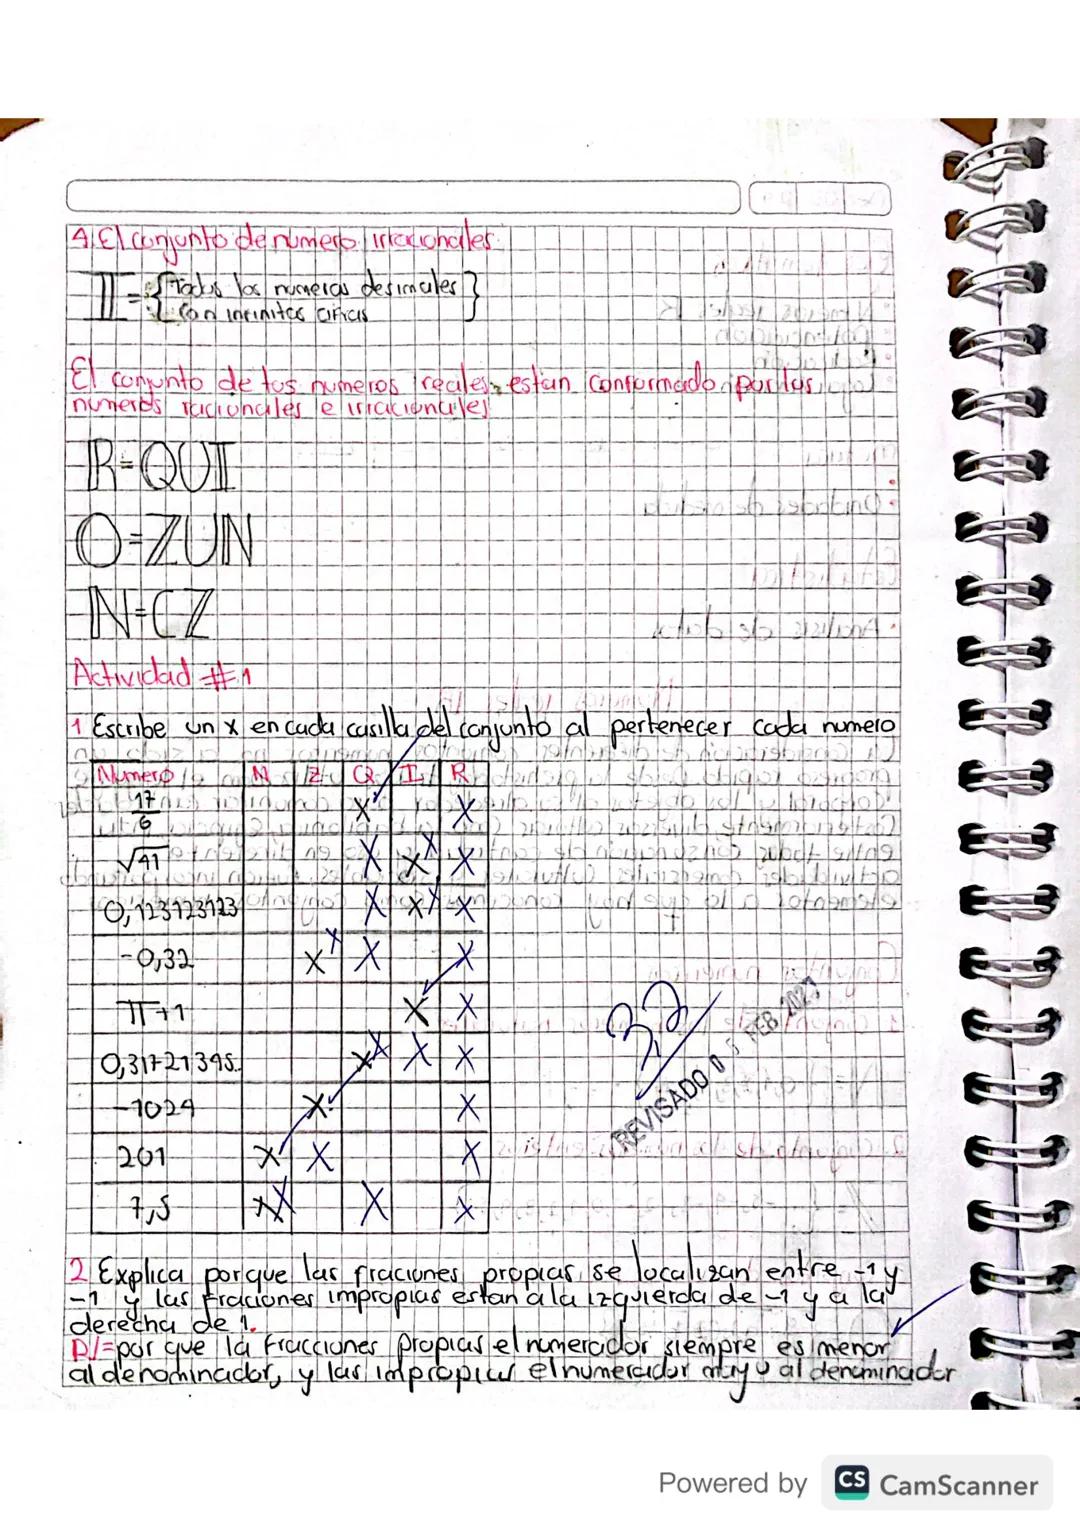 4 El conjunto de numero irracionales.
II = { Todos los numeros desimales }
Con infinitas cifras
El conjunto de los numeros reales estan conformado por los
numeros racionales e irracionales
R=QUI
Q=ZUN
N=CZ
Actividad #1
1 Escribe un x en cada casilla del conjunto al pertenecer cada numero
Numero N Z Q I R
17/6 X X
√41 X X X X
0,123123123 X X X X
-0,32 X X X X
π+1 X X
0,31721395.. X X X X
-1024 X X
201 X X X
7,5 X X X X
3,2
REVISADO 0 5 FEB 2021
2 Explica porque las fraciones propias se localizan entre -1 y
-1 y las fraciones impropias estan a la izquierda de -1 y a la
derecha de 1.
R/= por que la fracciones propias el numerador siempre es menor
al denominador, y las impropias el numerador mayo al denominador
Powered by CS CamScanner